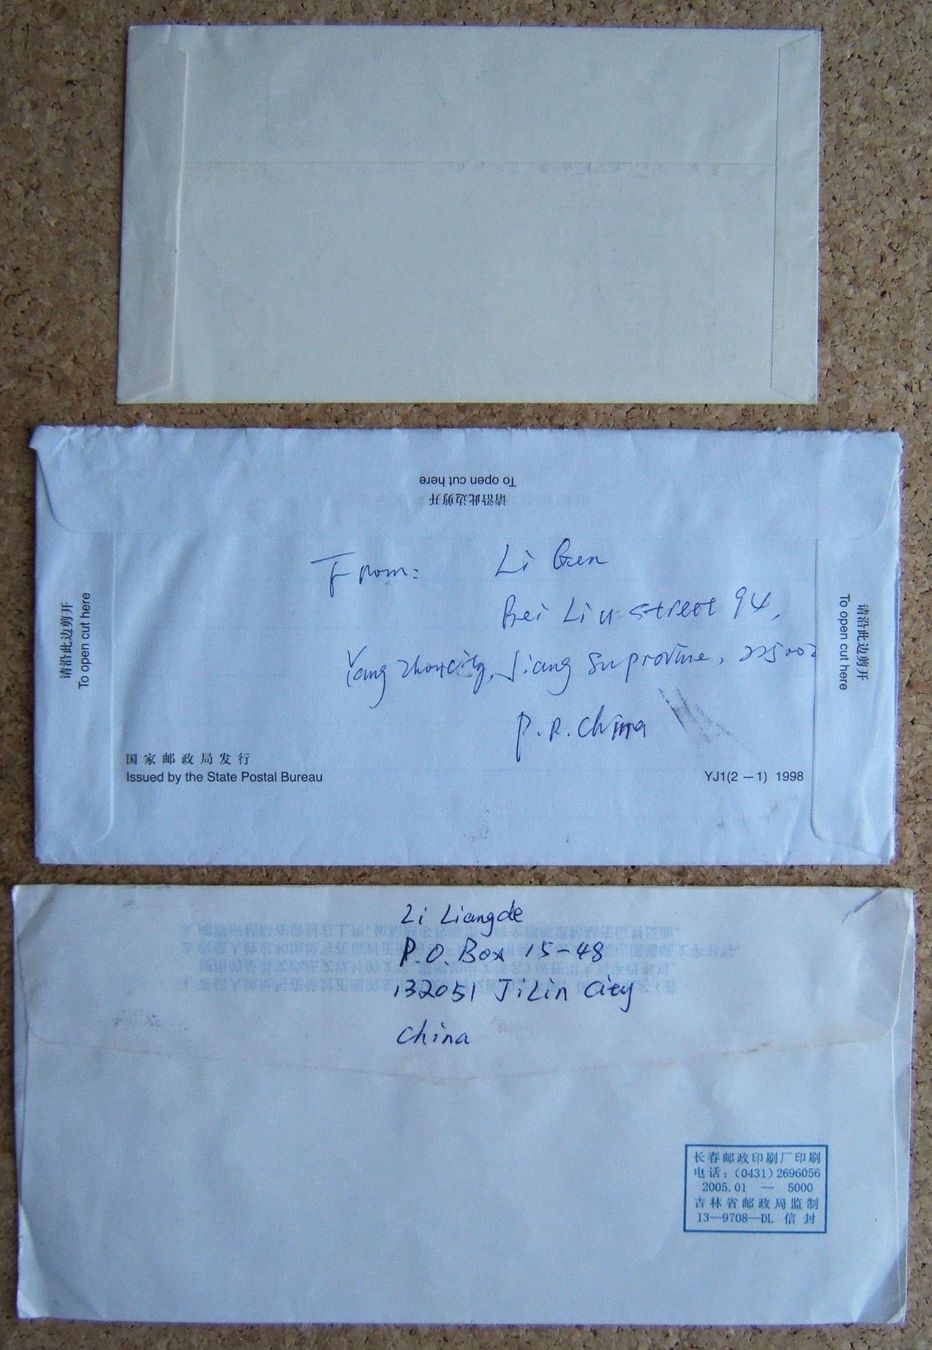 请沿此边剪开
To open cut here
From: Li Gen
Bei Liu street 94,
Yang zhou city, Jiang Su province, 225002
P.R. China
请沿此边剪开
To open cut here
请沿此边剪开
To open cut here
国家邮政局发行
Issued by the State Postal Bureau
YJ1(2—1) 1998
Li Liangde
P.O. Box 15-48
132051 JiLin City
China
长春邮政印刷厂印刷
电话:(0431)2696056
2005.01 — 5000
吉林省邮政局监制
13—9708—DL 信封